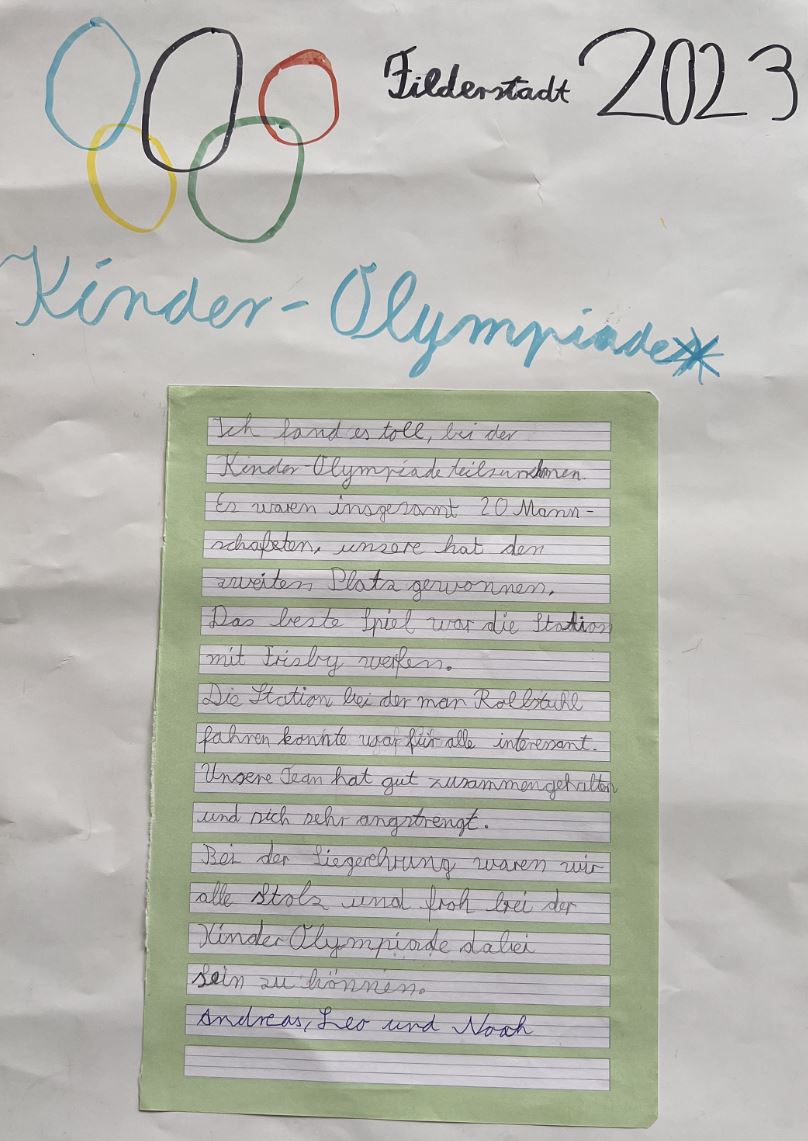 Filderstadt 2023
Kinder-Olympiade
Ich fand es toll, bei der
Kinder-Olympiade teilzunehmen.
Es waren insgesamt 20 Mann-
schafeten, unsere hat den
zweiten Platz gewonnen.
Das beste Spiel war die Station
mit Frisby werfen.
Die Station bei der man Rollstuhl
fahren konnte war für alle interessant.
Unsere Team hat gut zusammengehalten
und sich sehr angstrengt.
Bei der Siegerehrung waren wir
alle Stolz und froh bei der
Kinder Olympiade dabei
sein zu können.
Andreas, Leo und Noah